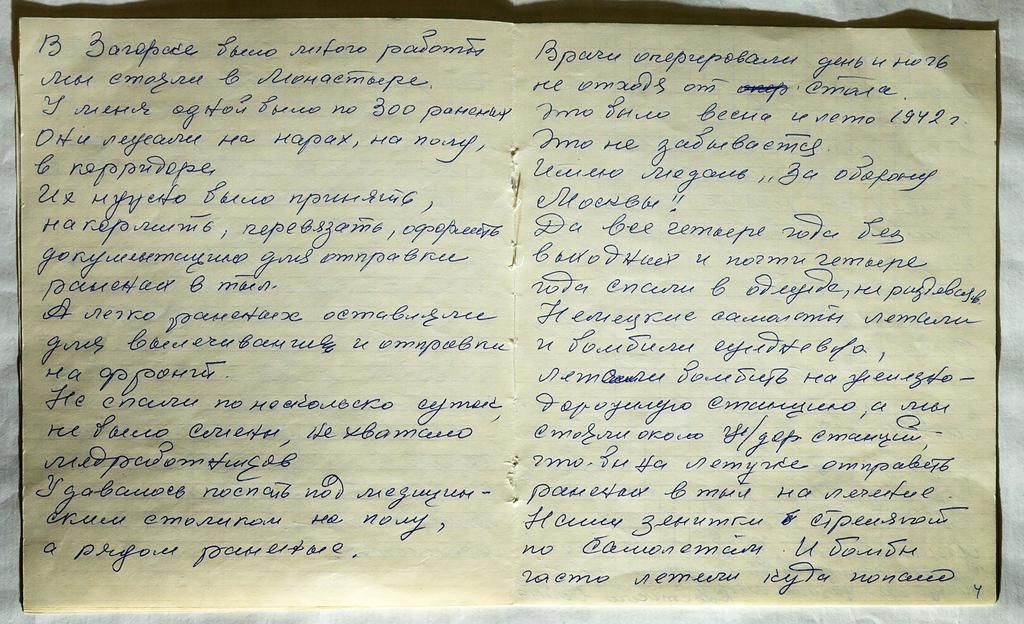 В Загорске было много работы
мы стояли в Монастыре.
У меня одной было по 300 раненых
Они лежали на нарах, на полу,
в корридоре
Их нужно было принять,
накормить, перевязать, оформить
документацию для отправки
раненых в тыл.
А легко раненых оставляли
для вылечивания и отправки
на фронт.
Не спали по несколько суток,
не было смены, не хватало
медработников
Удавалось поспать под медицин-
ским столиком на полу,
а рядом раненые.
Врачи оперировали день и ночь
не отходя от стола.
Это было весна и лето 1942 г.
Это не забывается.
Имею медаль „За оборону
Москвы"
Да все четыре года без
выходных и почти четыре
года спали в одежде, не раздеваясь.
Немецкие самолёты летали
и бомбили ежедневно,
летали бомбить на железно-
дорожную станцию, а мы
стояли около ж/дор станций,
что-бы на летучке отправить
раненых в тыл на лечение.
Наши зенитки стреляют
по самолетам. И бомбы
часто летели куда попало
4